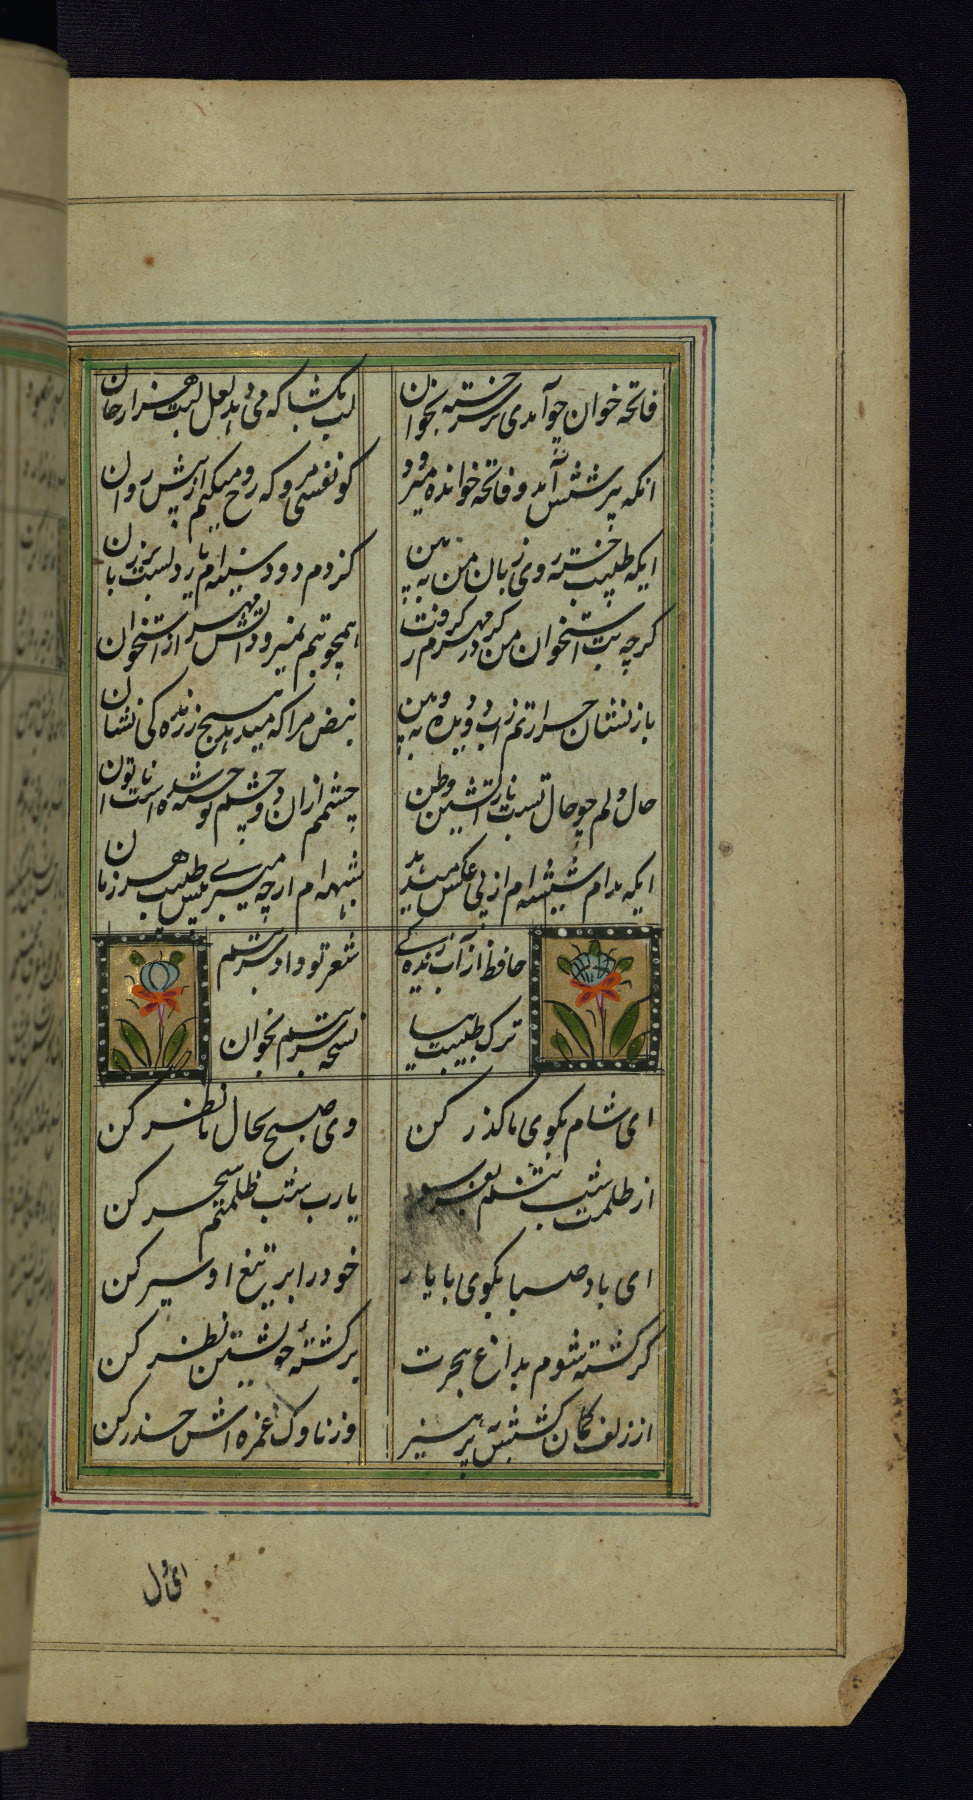 فاتحه خوان چو آمدی بر سر خسته بخوان
لب بکشا که می دهد لعل لبت هزار جان
انکه پرسشش آمد و فاتحه خوانده میرود
کو نفسی مرو که روح میکنم از پیش روان
ایکه طبیب خسته روی زبان من به بین
کز دم دود سینه ام بار دلست بر زبان
کرچه تب استخوان من کر در مهرم کرفت
همچو تبم نمیرود آتش مهر از استخوان
باز نشان حرارتم ز آب دو دیده و به بین
نبض مرا که میدهد هیچ ز زندکی نشان
حال دلم چو حال تست بآتشین وطن
چشمم از ان دو چشم تو خسته شده است ناتوان
ایکه مدام شیشه ام از پی عکس میدهد
شیشه ام از چه میبری پیش طبیب هر زمان
حافظ از آب زندکی
شعر تو داد شربتم
ترک طبیب بیا
نسخه شربتم بخوان
ای شام بکوی ما کذر کن
وی صبح بحال ما نظر کن
از ظلمت شب
یارب شب ظلمتم سحر کن
ای باد صبا بکوی با یار
خود را بر تیغ او سپر کن
کر کشته شوم بداغ هجرت
بر کشتهٔ خویشتن نظر کن
از زلف کمان کشش بپرهیز
وز ناوک غمزه اش حذر کن
ای دل